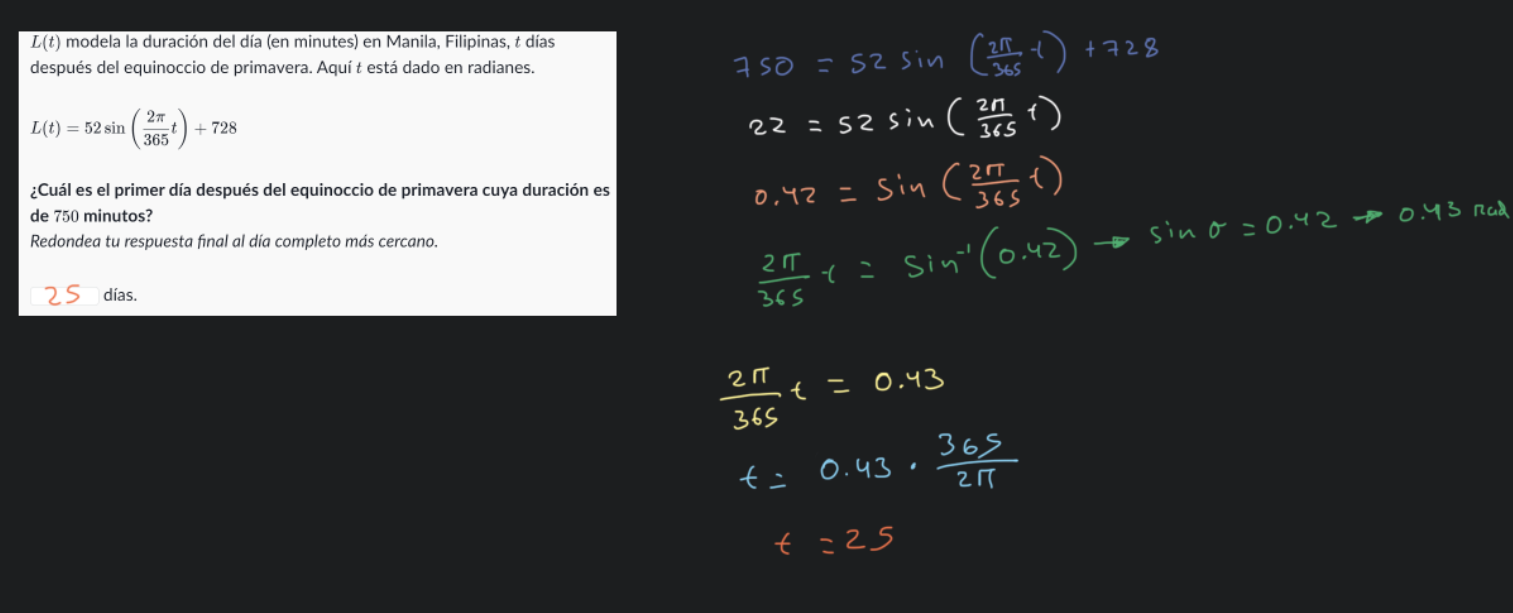 L(t) modela la duración del día (en minutes) en Manila, Filipinas, t días
después del equinoccio de primavera. Aquí t está dado en radianes.
L(t) = 52 sin(2π/365 t) + 728
¿Cuál es el primer día después del equinoccio de primavera cuya duración es
de 750 minutos?
Redondea tu respuesta final al día completo más cercano.
25 días.
750 = 52 sin (2π/365 t) + 728
22 = 52 sin (2π/365 t)
0.42 = sin (2π/365 t)
2π/365 t = sin⁻¹(0.42) → sin σ = 0.42 → 0.43 rad
2π/365 t = 0.43
t = 0.43 · 365/2π
t = 25